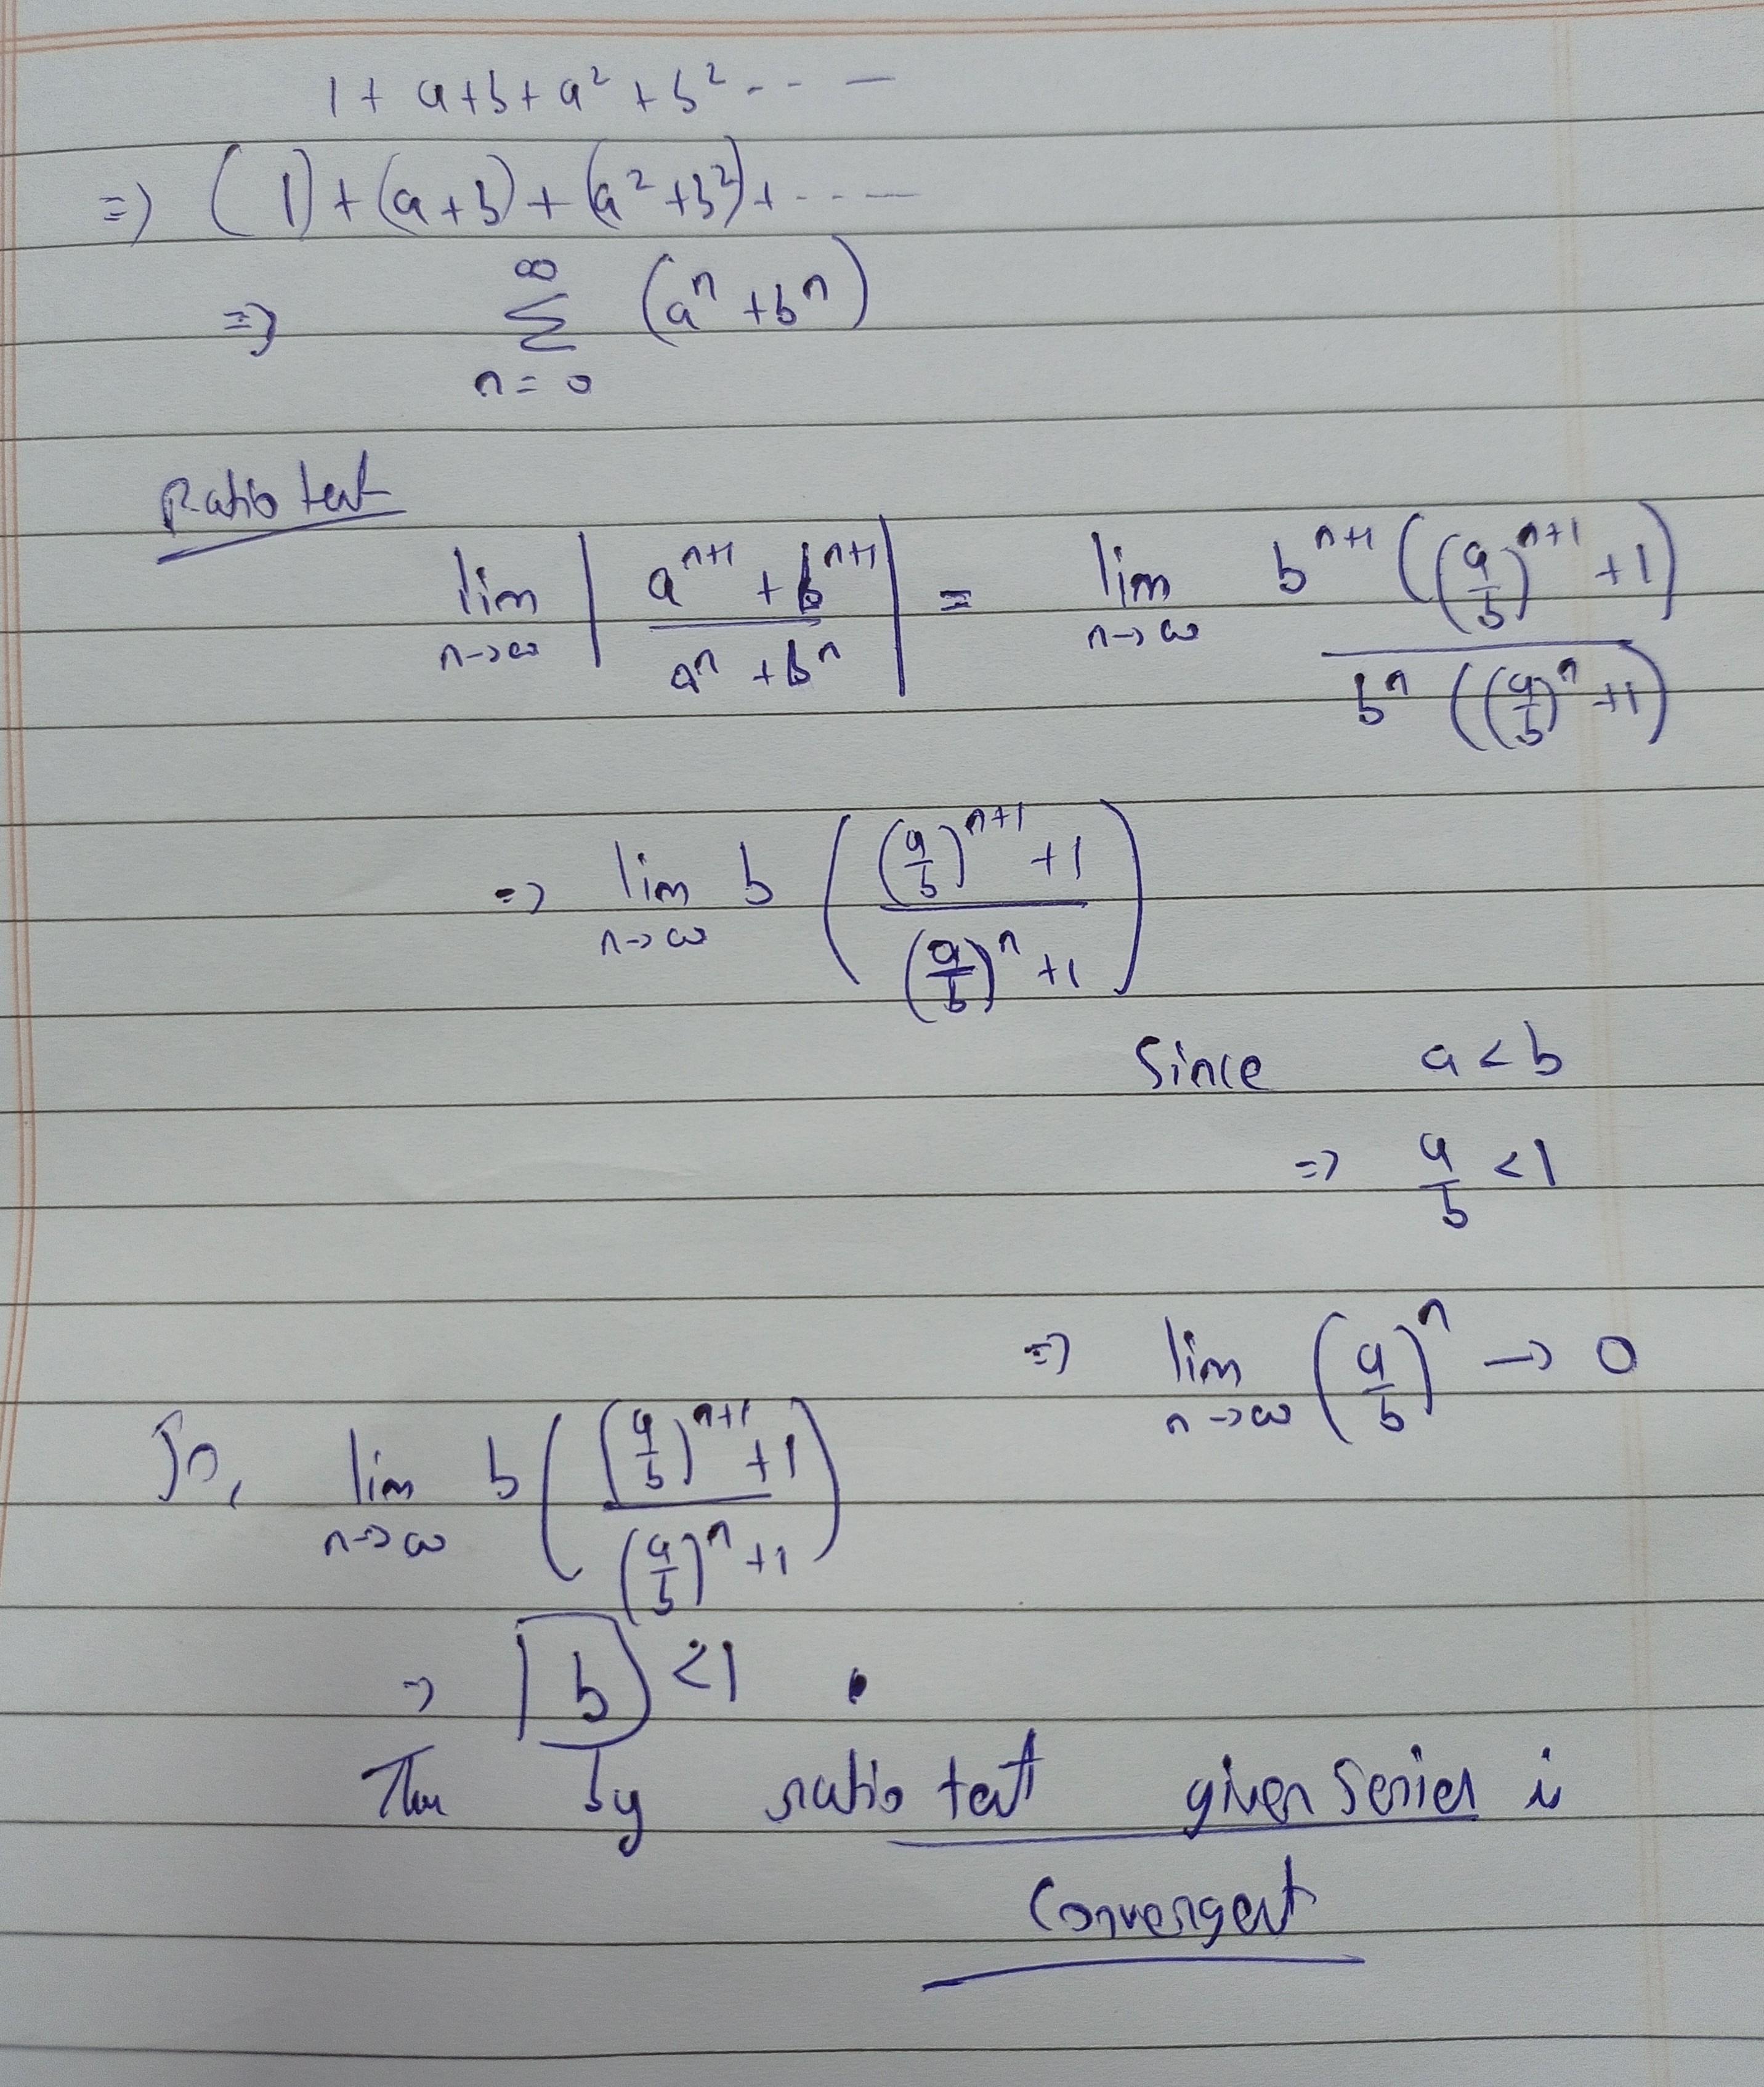 1 + a + b + a² + b² - - -
=> (1) + (a + b) + (a² + b²) + - - - -
=> ∞ Σ n = 0 (aⁿ + bⁿ)
Ratio test
lim n→∞ | (aⁿ⁺¹ + bⁿ⁺¹) / (aⁿ + bⁿ) | = lim n→∞ bⁿ⁺¹ ((a/b)ⁿ⁺¹ + 1) / bⁿ ((a/b)ⁿ + 1)
=> lim n→∞ b ( ((a/b)ⁿ⁺¹ + 1) / ((a/b)ⁿ + 1) )
Since a < b
=> a/b < 1
=> lim n→∞ (a/b)ⁿ → 0
So, lim n→∞ b ( ((a/b)ⁿ⁺¹ + 1) / ((a/b)ⁿ + 1) )
=> b < 1
by ratio test given series is
Convergent